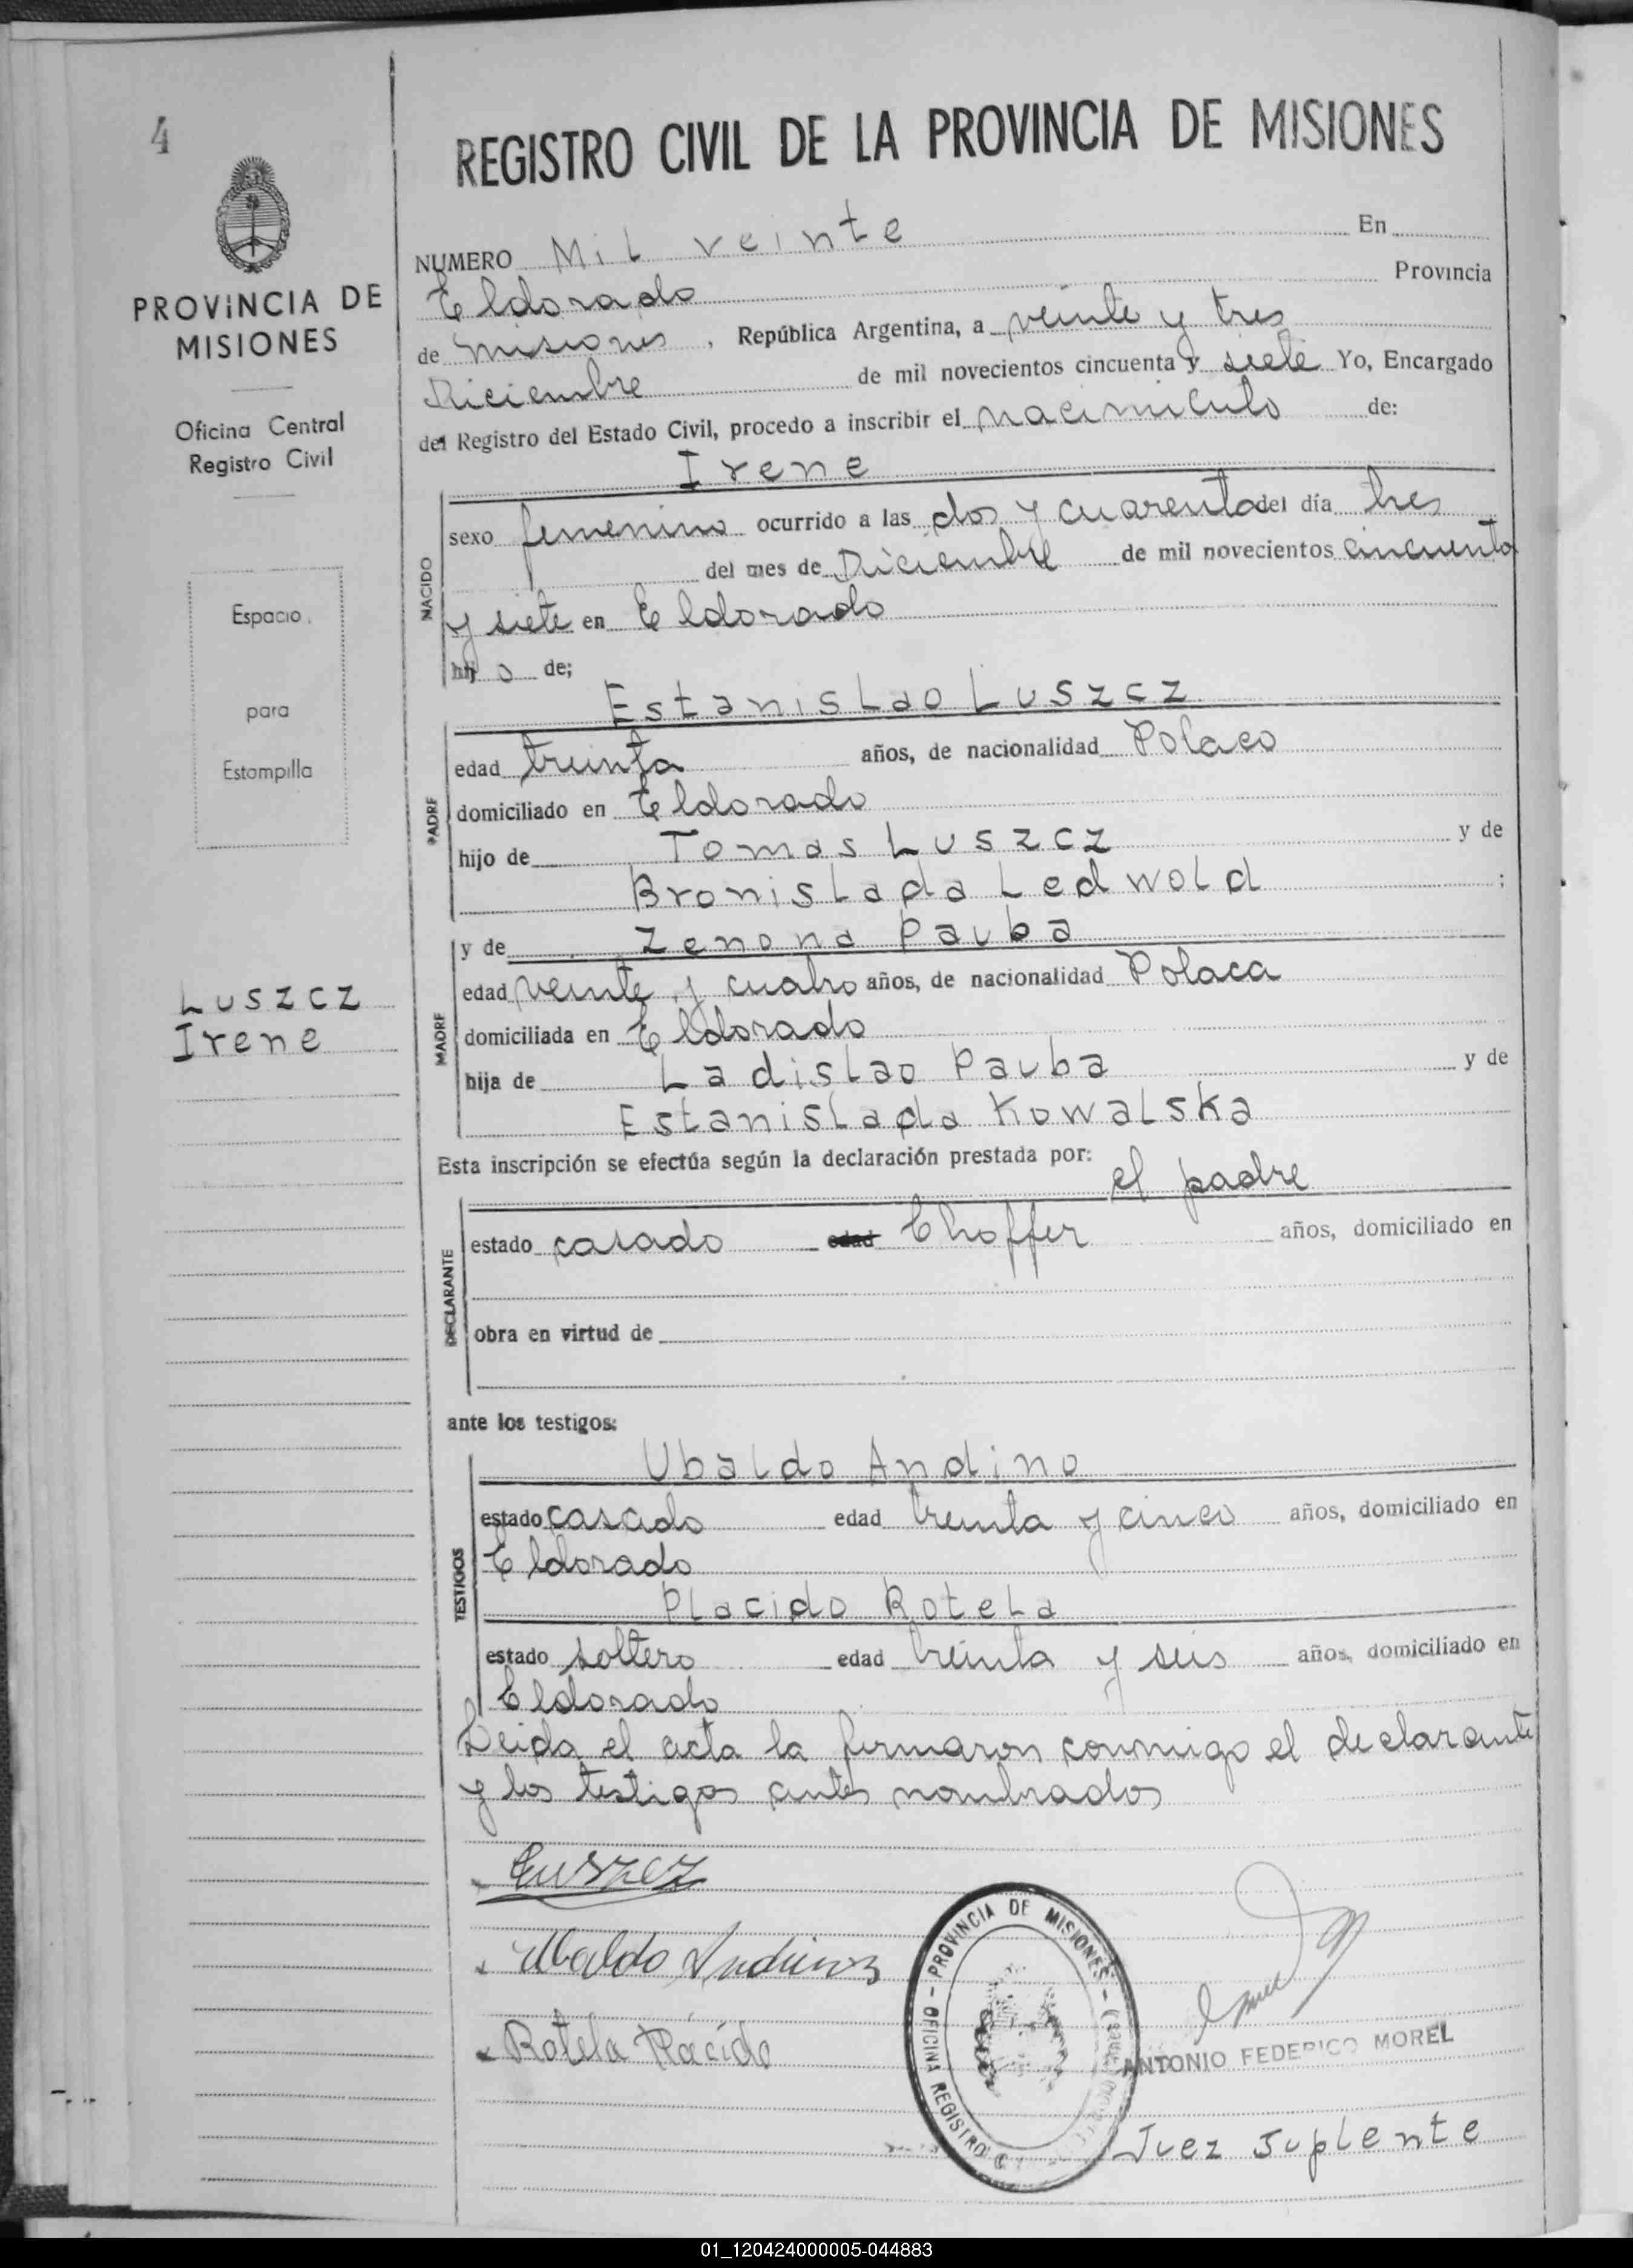 4
PROVINCIA DE
MISIONES
Oficina Central
Registro Civil
Espacio
para
Estampilla
Luszcz
Irene
REGISTRO CIVIL DE LA PROVINCIA DE MISIONES
NUMERO Mil veinte En
Eldorado Provincia
de Misiones, República Argentina, a veinte y tres
Diciembre de mil novecientos cincuenta y siete Yo, Encargado
del Registro del Estado Civil, procedo a inscribir el nacimiento de:
Irene
NACIDO
sexo femenino ocurrido a las dos y cuarenta del día tres
del mes de Diciembre de mil novecientos cincuenta
y siete en Eldorado
hij a de;
Estanislao Luszcz
PADRE
edad treinta años, de nacionalidad Polaco
domiciliado en Eldorado
hijo de Tomas Luszcz y de
Bronislada Ledwold ;
y de Zenona Pauba
MADRE
edad veinte y cuatro años, de nacionalidad Polaca
domiciliada en Eldorado
hija de Ladislao Pauba y de
Estanislada Kowalska
Esta inscripción se efectúa según la declaración prestada por:
el padre
DECLARANTE
estado casado edad Choffer años, domiciliado en
obra en virtud de
ante los testigos:
Ubaldo Andino
TESTIGOS
estado casado edad treinta y cinco años, domiciliado en
Eldorado
Placido Rotela
estado soltero edad treinta y seis años, domiciliado en
Eldorado
Leida el acta la firmaron conmigo el declarante
y los testigos antes nombrados
Luszcz
Ubaldo Andino
Rotela Plácido
OFICINA REGISTRO C - PROVINCIA DE MISIONES -
ANTONIO FEDERICO MOREL
Juez Suplente
01_120424000005-044883